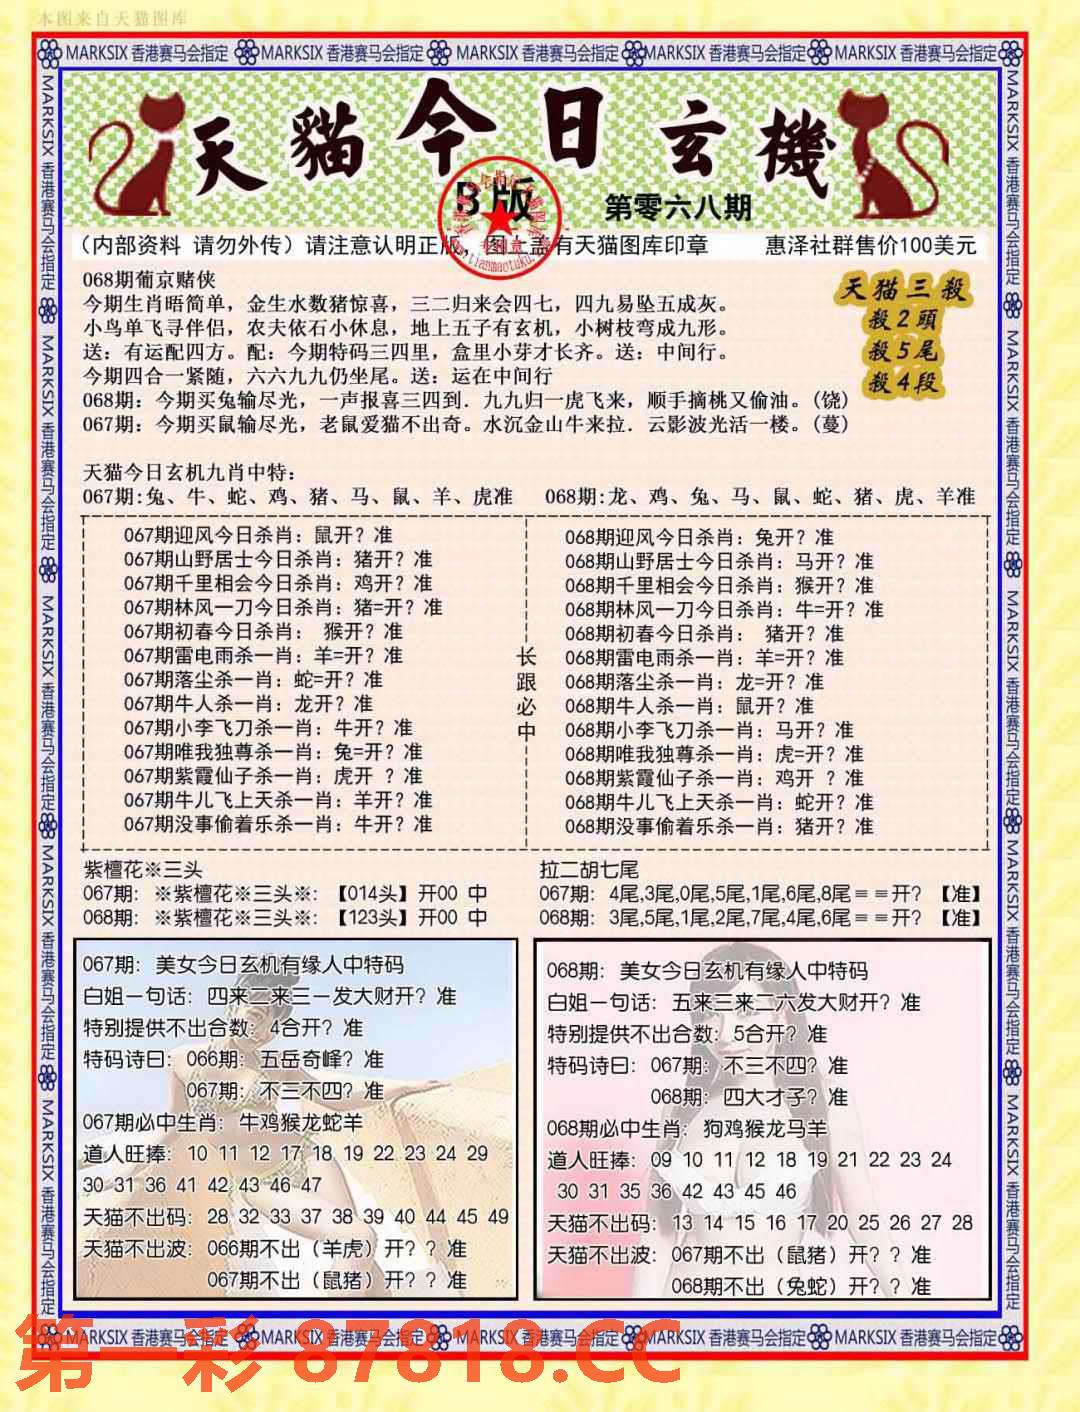 本图来自天猫图库
MARKSIX 香港赛马会指定 MARKSIX 香港赛马会指定 MARKSIX 香港赛马会指定 MARKSIX 香港赛马会指定 MARKSIX 香港赛马会指定
天貓今日玄機
B版
第零六八期
(内部资料 请勿外传)请注意认明正版,图上盖有天猫图库印章 惠泽社群售价100美元
068期葡京赌侠
今期生肖晤简单,金生水数猪惊喜,三二归来会四七,四九易坠五成灰。
小鸟单飞寻伴侣,农夫依石小休息,地上五子有玄机,小树枝弯成九形。
送:有运配四方。配:今期特码三四里,盒里小芽才长齐。送:中间行。
今期四合一紧随,六六九九仍坐尾。送:运在中间行
068期:今期买兔输尽光,一声报喜三四到.九九归一虎飞来,顺手摘桃又偷油。(饶)
067期:今期买鼠输尽光,老鼠爱猫不出奇。水沉金山牛来拉.云影波光活一楼。(蔓)
天猫三殺
殺2頭
殺5尾
殺4段
天猫今日玄机九肖中特:
067期:兔、牛、蛇、鸡、猪、马、鼠、羊、虎准 068期:龙、鸡、兔、马、鼠、蛇、猪、虎、羊准
067期迎风今日杀肖:鼠开?准
067期山野居士今日杀肖:猪开?准
067期千里相会今日杀肖:鸡开?准
067期林风一刀今日杀肖:猪=开?准
067期初春今日杀肖: 猴开?准
067期雷电雨杀一肖:羊=开?准
067期落尘杀一肖:蛇=开?准
067期牛人杀一肖:龙开?准
067期小李飞刀杀一肖:牛开?准
067期唯我独尊杀一肖:兔=开?准
067期紫霞仙子杀一肖:虎开 ?准
067期牛儿飞上天杀一肖:羊开?准
067期没事偷着乐杀一肖:牛开?准
长
跟
必
中
068期迎风今日杀肖:兔开?准
068期山野居士今日杀肖:马开?准
068期千里相会今日杀肖:猴开?准
068期林风一刀今日杀肖:牛=开?准
068期初春今日杀肖: 猪开?准
068期雷电雨杀一肖:羊=开?准
068期落尘杀一肖:龙=开?准
068期牛人杀一肖:鼠开?准
068期小李飞刀杀一肖:马开?准
068期唯我独尊杀一肖:虎=开?准
068期紫霞仙子杀一肖:鸡开 ?准
068期牛儿飞上天杀一肖:蛇开?准
068期没事偷着乐杀一肖:猪开?准
紫檀花※三头
067期: ※紫檀花※三头※:【014头】开00 中
068期: ※紫檀花※三头※:【123头】开00 中
拉二胡七尾
067期: 4尾,3尾,0尾,5尾,1尾,6尾,8尾==开?【准】
068期: 3尾,5尾,1尾,2尾,7尾,4尾,6尾==开?【准】
067期:美女今日玄机有缘人中特码
白姐一句话:四来二来三一发大财开?准
特别提供不出合数:4合开?准
特码诗曰:066期:五岳奇峰?准
067期:不三不四?准
067期必中生肖:牛鸡猴龙蛇羊
道人旺捧:10 11 12 17 18 19 22 23 24 29
30 31 36 41 42 43 46 47
天猫不出码:28 32 33 37 38 39 40 44 45 49
天猫不出波:066期不出(羊虎)开??准
067期不出(鼠猪)开??准
068期:美女今日玄机有缘人中特码
白姐一句话:五来三来二六发大财开?准
特别提供不出合数:5合开?准
特码诗曰:067期:不三不四?准
068期:四大才子?准
068期必中生肖:狗鸡猴龙马羊
道人旺捧:09 10 11 12 18 19 21 22 23 24
30 31 35 36 42 43 45 46
天猫不出码:13 14 15 16 17 20 25 26 27 28
天猫不出波:067期不出(鼠猪)开??准
068期不出(兔蛇)开??准
MARKSIX 香港赛马会指定 MARKSIX 香港赛马会指定 MARKSIX 香港赛马会指定 MARKSIX 香港赛马会指定 MARKSIX 香港赛马会指定
第一彩 87818.CC
MARKSIX 香港赛马会指定 MARKSIX 香港赛马会指定 MARKSIX 香港赛马会指定 MARKSIX 香港赛马会指定 MARKSIX 香港赛马会指定
MARKSIX 香港赛马会指定 MARKSIX 香港赛马会指定 MARKSIX 香港赛马会指定 MARKSIX 香港赛马会指定 MARKSIX 香港赛马会指定